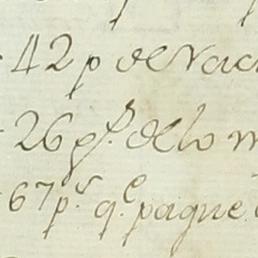 42 p de
26 ps. de lo
67 ps. q.e pague